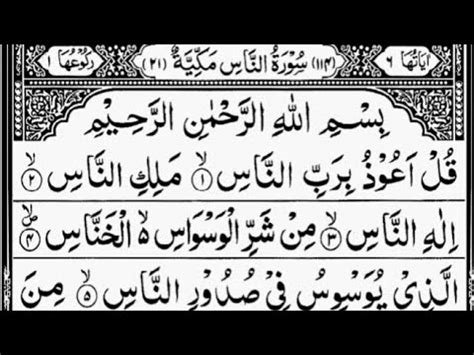 اٰیَاتُهَا ٦ (١١٤) سُوْرَةُ النَّاسِ مَكِّیَّةٌ (٢١) رُكُوْعُهَا ١
بِسْمِ اللّٰهِ الرَّحْمٰنِ الرَّحِیْمِ
قُلْ اَعُوْذُ بِرَبِّ النَّاسِ ۙ﴿١﴾ مَلِكِ النَّاسِ ۙ﴿٢﴾
اِلٰهِ النَّاسِ ۙ﴿٣﴾ مِنْ شَرِّ الْوَسْوَاسِ ۙ۬ الْخَنَّاسِ ۪ۙ﴿٤﴾
الَّذِیْ یُوَسْوِسُ فِیْ صُدُوْرِ النَّاسِ ۙ﴿٥﴾ مِنَ